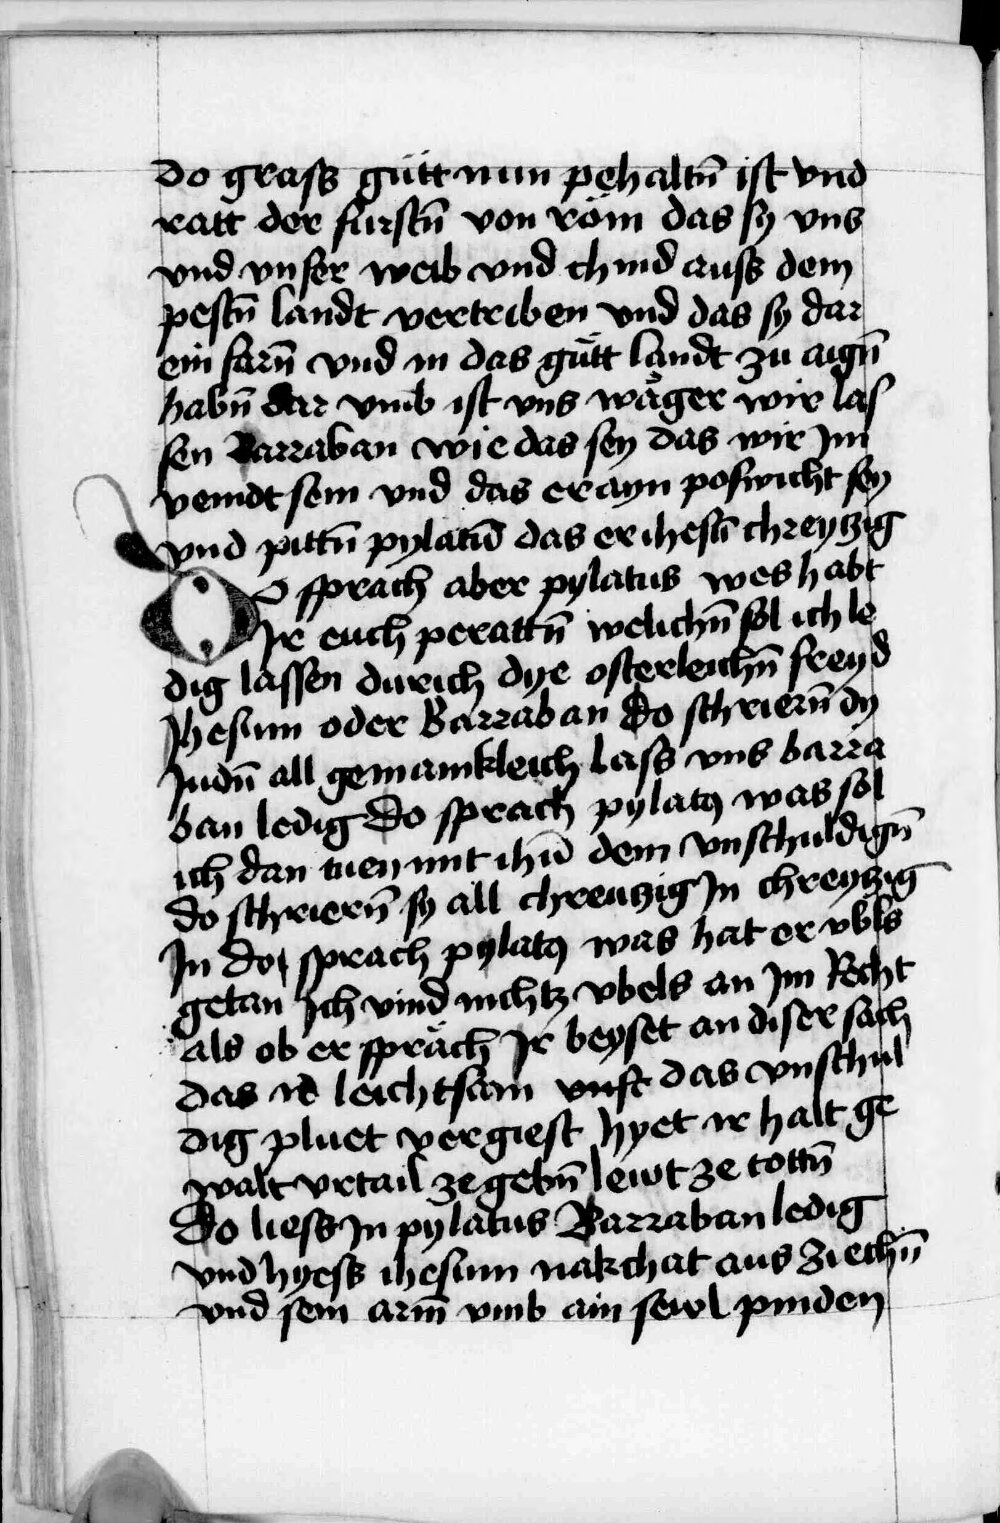 do grass gütt nun pehaltn̄ ist vnd
ratt der furstn̄ von röm das sy vns
vnd vnser weib vnd chind auss dem
pestn̄ landt vertriben vnd das sy dar
ein farn̄ vnd in das gütt landt zu aign̄
habn̄ dar vmb ist vns wäger wir las
sen Barraban wie das sey das wir Jm
veindt sein vnd das er ayn poswicht sey
vnd pittn̄ pylatū das er ihesū chreytzig
Do sprach aber pylatus wes habt
Jr euch perattn̄ welichn̄ sol ich le
dig lassen durich dye osterleichn̄ freyd
Jhesum oder Barraban Do schriern̄ dy
Judn̄ all gemainkleich lass vns barra
ban ledig Do sprach pylatꝰ was sol
ich dan tuen mit ihū dem vnschuldign̄
do schriern̄ sy all chreutzig Jn chreytzig
Jn Do sprach pylatꝰ was hat er vbls
getan Jch vind nichtz vbels an Jm Recht
als ob er spräch Jr beyset an diser sach
das ir leichtsam vnst das vnschul
dig pluet vergiest hyet ir halt ge
walt vrtail ze gebn̄ lewt ze tottn̄
Do liess Jn pylatus Barraban ledig
vnd hyess ihesum nakchat aus ziechn̄
vnd sein arm̄ vmb ain sewl pinden